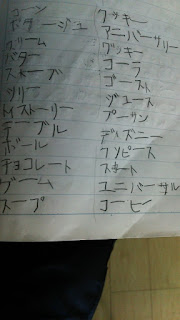 コーン
ポタージュ
クリーム
バター
スカーフ
ツリー
トイストーリー
テーブル
ボール
チョコレート
ゲーム
スープ
クッキー
アニバーサリー
グッキー
コーラ
ゴースト
ジュース
プーサン
ディズニー
ワンピース
スカート
ユニバーサル
コーヒー